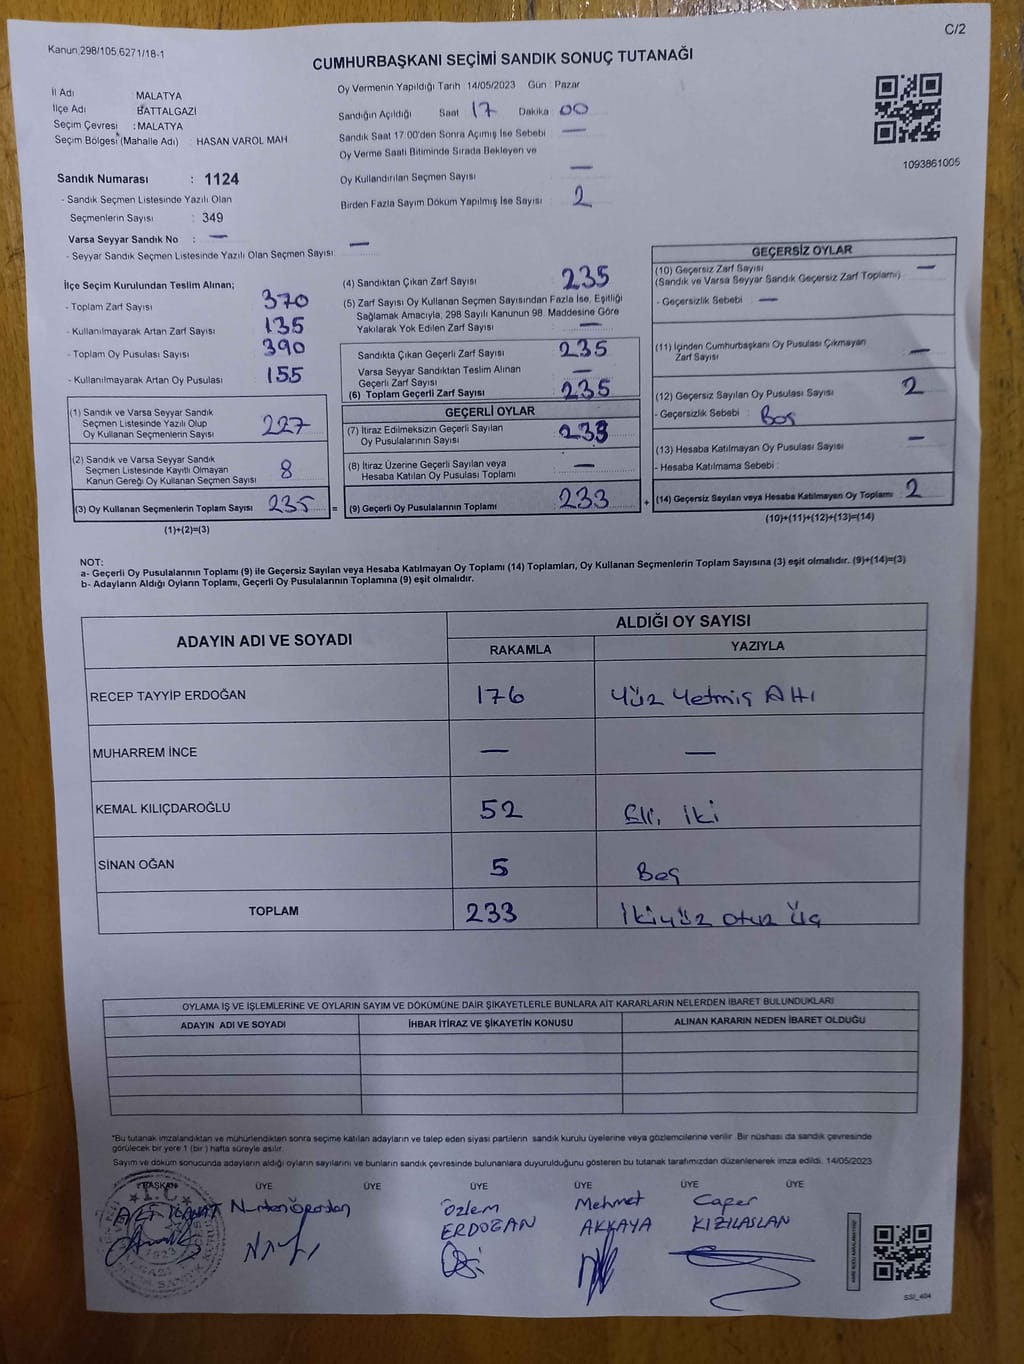 C/2
Kanun,298/105,6271/18-1
CUMHURBAŞKANI SEÇİMİ SANDIK SONUÇ TUTANAĞI
İl Adı MALATYA
İlçe Adı BATTALGAZİ
Seçim Çevresi : MALATYA
Seçim Bölgesi (Mahalle Adı) : HASAN VAROL MAH
Oy Vermenin Yapıldığı Tarih : 14/05/2023 Gün : Pazar
Sandığın Açıldığı Saat 17 Dakika 00
Sandık Saat 17:00'den Sonra Açımış İse Sebebi —
Oy Verme Saati Bitiminde Sırada Bekleyen ve
Oy Kullandırılan Seçmen Sayısı —
Birden Fazla Sayım Döküm Yapılmış İse Sayısı : 2
1093861005
Sandık Numarası : 1124
- Sandık Seçmen Listesinde Yazılı Olan
Seçmenlerin Sayısı : 349
Varsa Seyyar Sandık No : —
- Seyyar Sandık Seçmen Listesinde Yazılı Olan Seçmen Sayısı : —
İlçe Seçim Kurulundan Teslim Alınan;
- Toplam Zarf Sayısı 370
- Kullanılmayarak Artan Zarf Sayısı 135
- Toplam Oy Pusulası Sayısı 390
- Kullanılmayarak Artan Oy Pusulası 155
(1) Sandık ve Varsa Seyyar Sandık
Seçmen Listesinde Yazılı Olup
Oy Kullanan Seçmenlerin Sayısı 227
(2) Sandık ve Varsa Seyyar Sandık
Seçmen Listesinde Kayıtlı Olmayan
Kanun Gereği Oy Kullanan Seçmen Sayısı 8
(3) Oy Kullanan Seçmenlerin Toplam Sayısı 235 =
(1)+(2)=(3)
(4) Sandıktan Çıkan Zarf Sayısı 235
(5) Zarf Sayısı Oy Kullanan Seçmen Sayısından Fazla İse, Eşitliği
Sağlamak Amacıyla, 298 Sayılı Kanunun 98. Maddesine Göre
Yakılarak Yok Edilen Zarf Sayısı —
Sandıkta Çıkan Geçerli Zarf Sayısı 235
Varsa Seyyar Sandıktan Teslim Alınan
Geçerli Zarf Sayısı —
(6) Toplam Geçerli Zarf Sayısı 235
GEÇERLİ OYLAR
(7) İtiraz Edilmeksizin Geçerli Sayılan
Oy Pusulalarının Sayısı 233
(8) İtiraz Üzerine Geçerli Sayılan veya
Hesaba Katılan Oy Pusulası Toplamı —
(9) Geçerli Oy Pusulalarının Toplamı 233 +
GEÇERSİZ OYLAR
(10) Geçersiz Zarf Sayısı —
(Sandık ve Varsa Seyyar Sandık Geçersiz Zarf Toplamı)
- Geçersizlik Sebebi : —
(11) İçinden Cumhurbaşkanı Oy Pusulası Çıkmayan
Zarf Sayısı —
(12) Geçersiz Sayılan Oy Pusulası Sayısı 2
- Geçersizlik Sebebi : Boş
(13) Hesaba Katılmayan Oy Pusulası Sayısı —
- Hesaba Katılmama Sebebi :
(14) Geçersiz Sayılan veya Hesaba Katılmayan Oy Toplamı 2
(10)+(11)+(12)+(13)=(14)
NOT:
a- Geçerli Oy Pusulalarının Toplamı (9) ile Geçersiz Sayılan veya Hesaba Katılmayan Oy Toplamı (14) Toplamları, Oy Kullanan Seçmenlerin Toplam Sayısına (3) eşit olmalıdır. (9)+(14)=(3)
b- Adayların Aldığı Oyların Toplamı, Geçerli Oy Pusulalarının Toplamına (9) eşit olmalıdır.
ADAYIN ADI VE SOYADI ALDIĞI OY SAYISI
RAKAMLA YAZIYLA
RECEP TAYYİP ERDOĞAN 176 Yüz Yetmiş Altı
MUHARREM İNCE — —
KEMAL KILIÇDAROĞLU 52 Elli iki
SİNAN OĞAN 5 Beş
TOPLAM 233 İkiyüz otuz üç
OYLAMA İŞ VE İŞLEMLERİNE VE OYLARIN SAYIM VE DÖKÜMÜNE DAİR ŞİKAYETLERLE BUNLARA AİT KARARLARIN NELERDEN İBARET BULUNDUKLARI
ADAYIN ADI VE SOYADI İHBAR İTİRAZ VE ŞİKAYETİN KONUSU ALINAN KARARIN NEDEN İBARET OLDUĞU
*Bu tutanak imzalandıktan ve mühürlendikten sonra seçime katılan adayların ve talep eden siyasi partilerin sandık kurulu üyelerine veya gözlemcilerine verilir. Bir nüshası da sandık çevresinde
görülecek bir yere 1 (bir ) hafta süreyle asılır.
Sayım ve döküm sonucunda adayların aldığı oyların sayılarını ve bunların sandık çevresinde bulunanlara duyurulduğunu gösteren bu tutanak tarafımızdan düzenlenerek imza edildi. 14/05/2023
BAŞKAN ÜYE ÜYE ÜYE ÜYE ÜYE ÜYE
T.C.
Özlem Mehmet Cafer
ERDOĞAN AKKAYA KIZILASLAN
SSİ_404